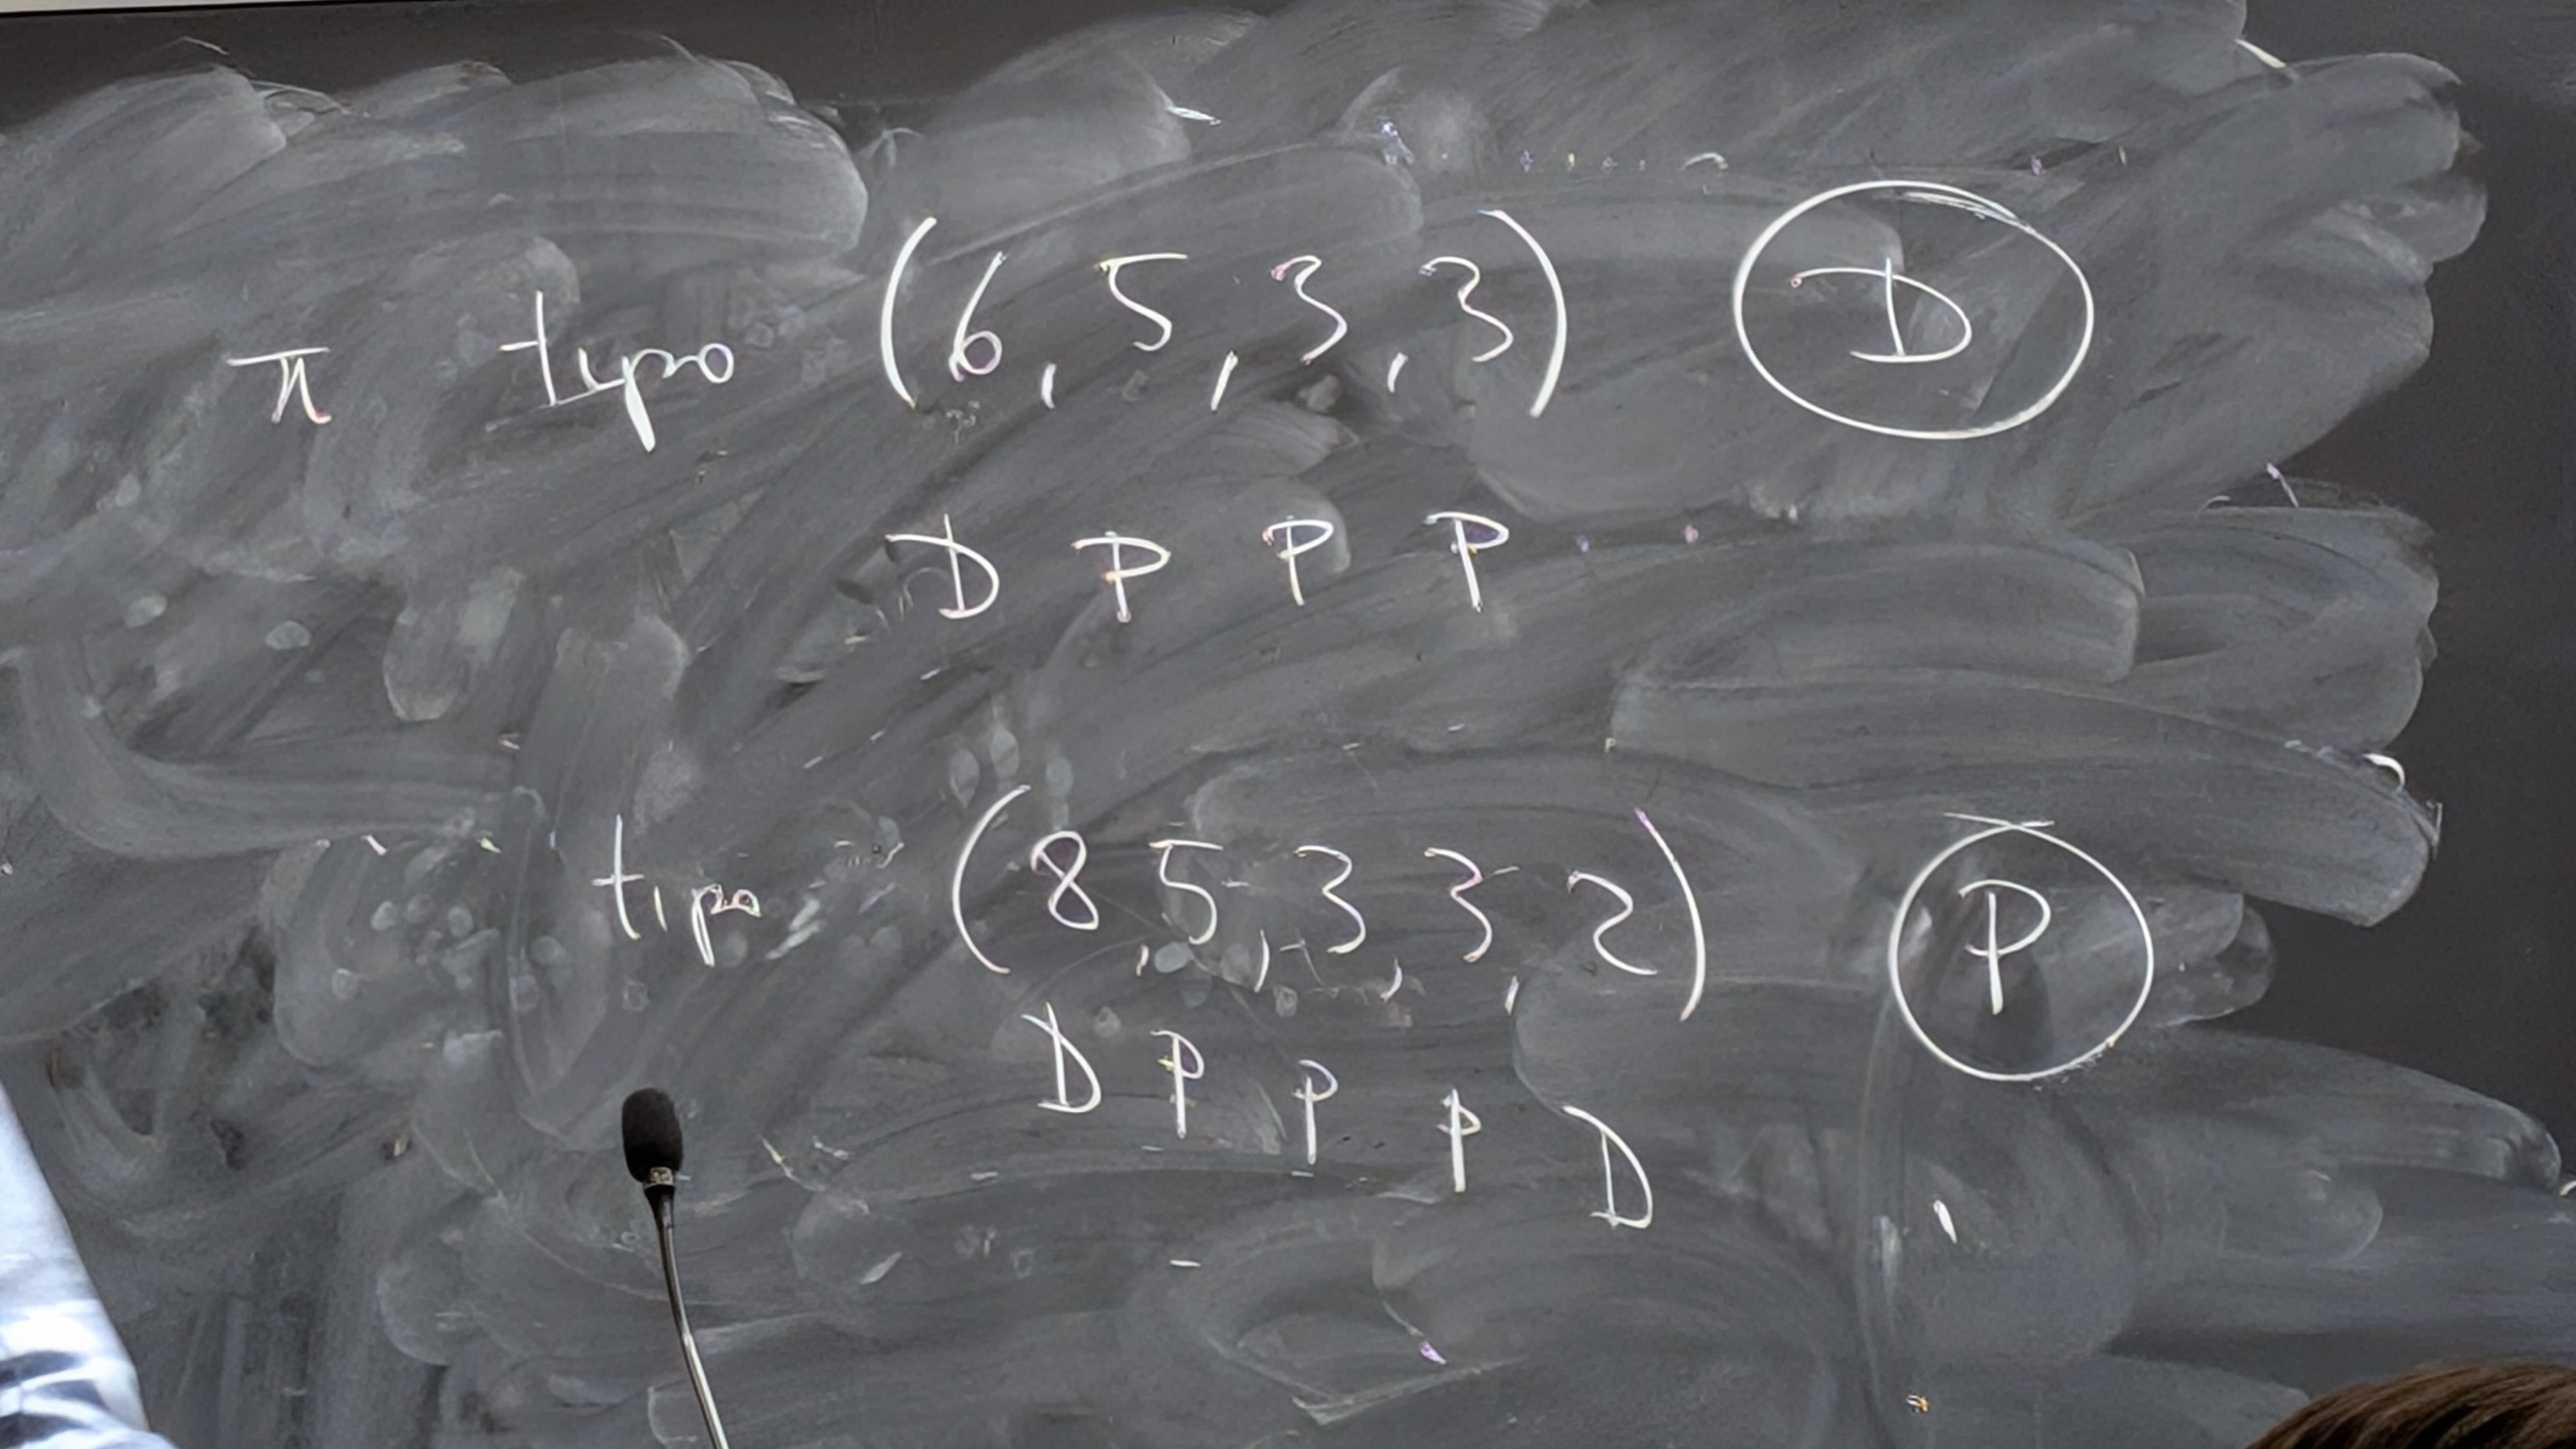 π tipo (6, 5, 3, 3) D
D P P P
tipo (8, 5, 3, 3, 2) P
D P P P D